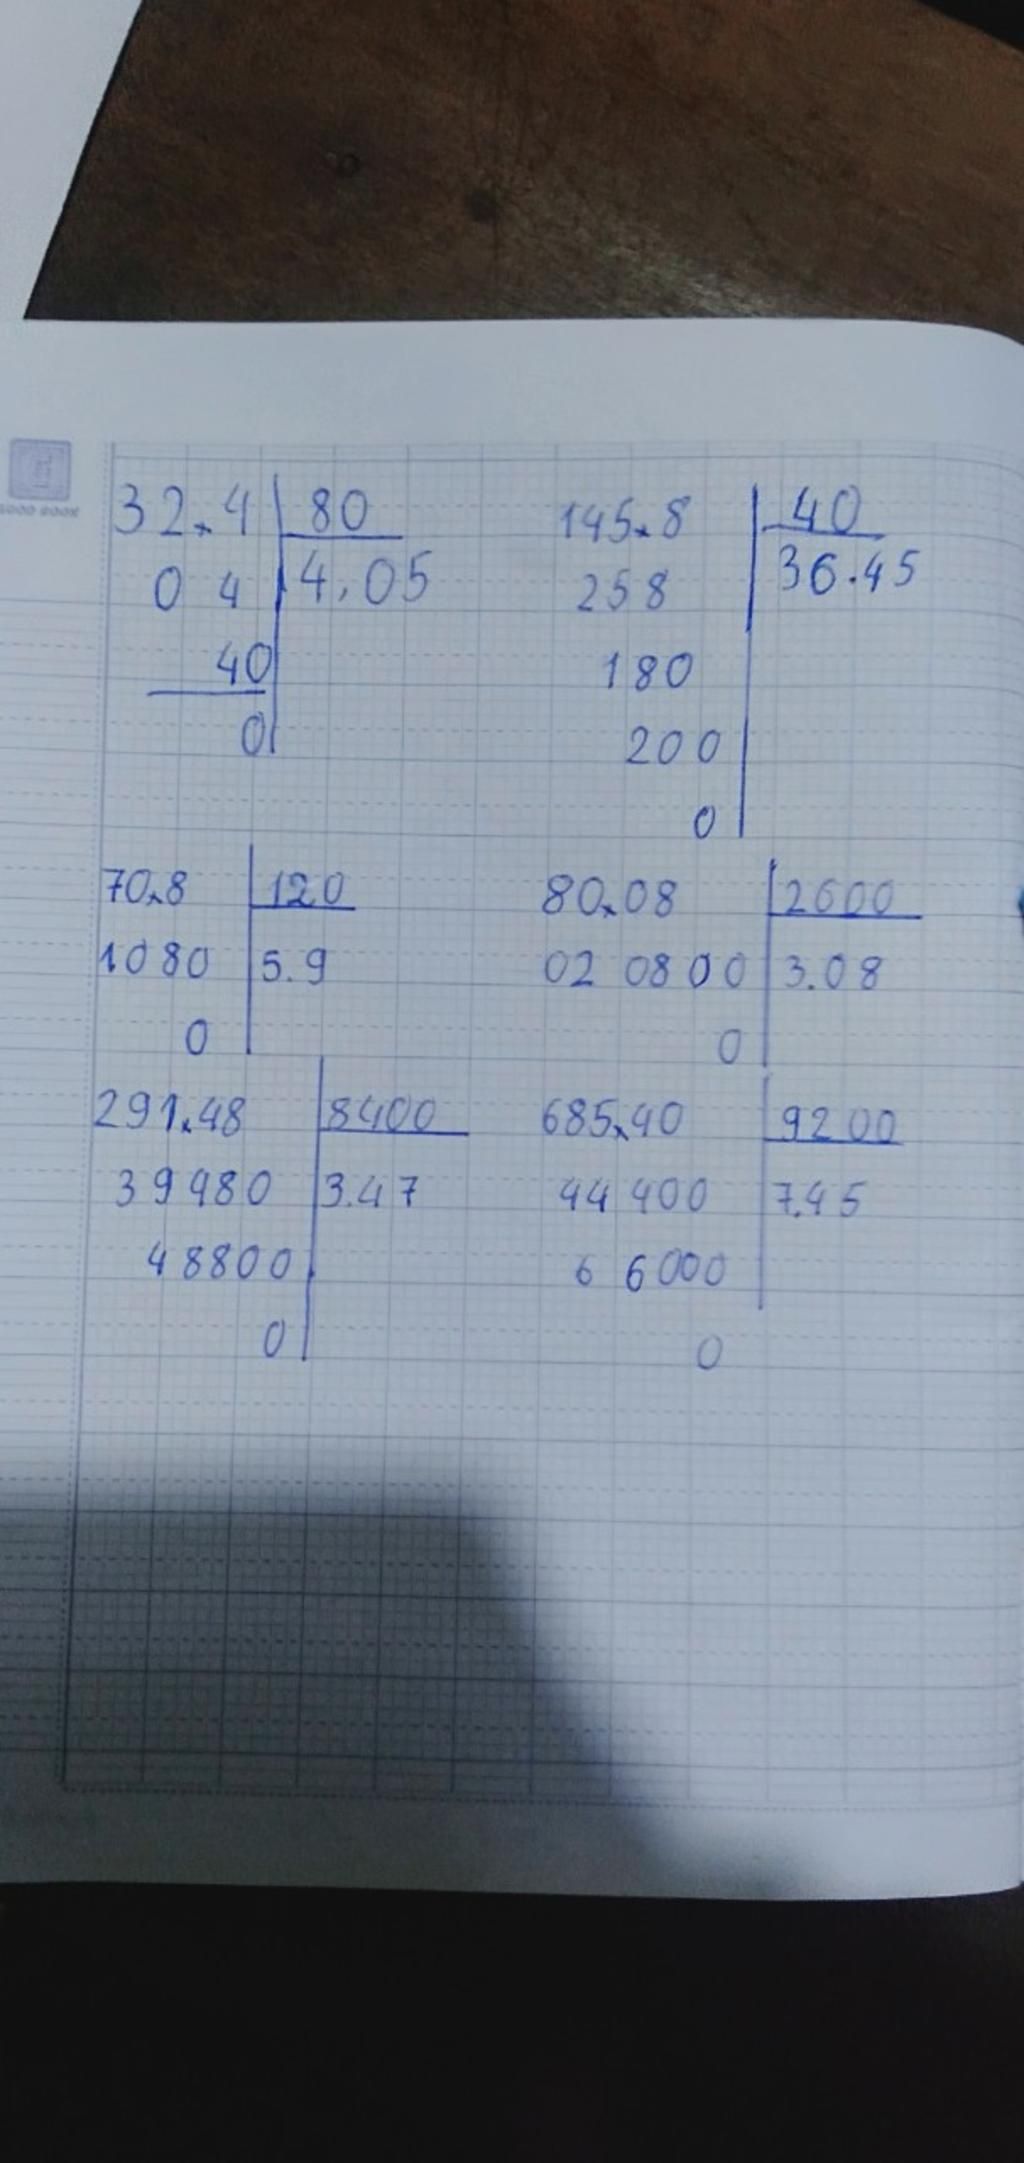 GOOD BOOK
32.4 80
0 4 4,05
40
0
145.8 40
258 36.45
180
200
0
70.8 120
1080 5.9
0
80.08 2600
02 0800 3.08
0
291.48 8400
39480 3.47
48800
0
685.40 9200
44 400 7.45
6 6000
0